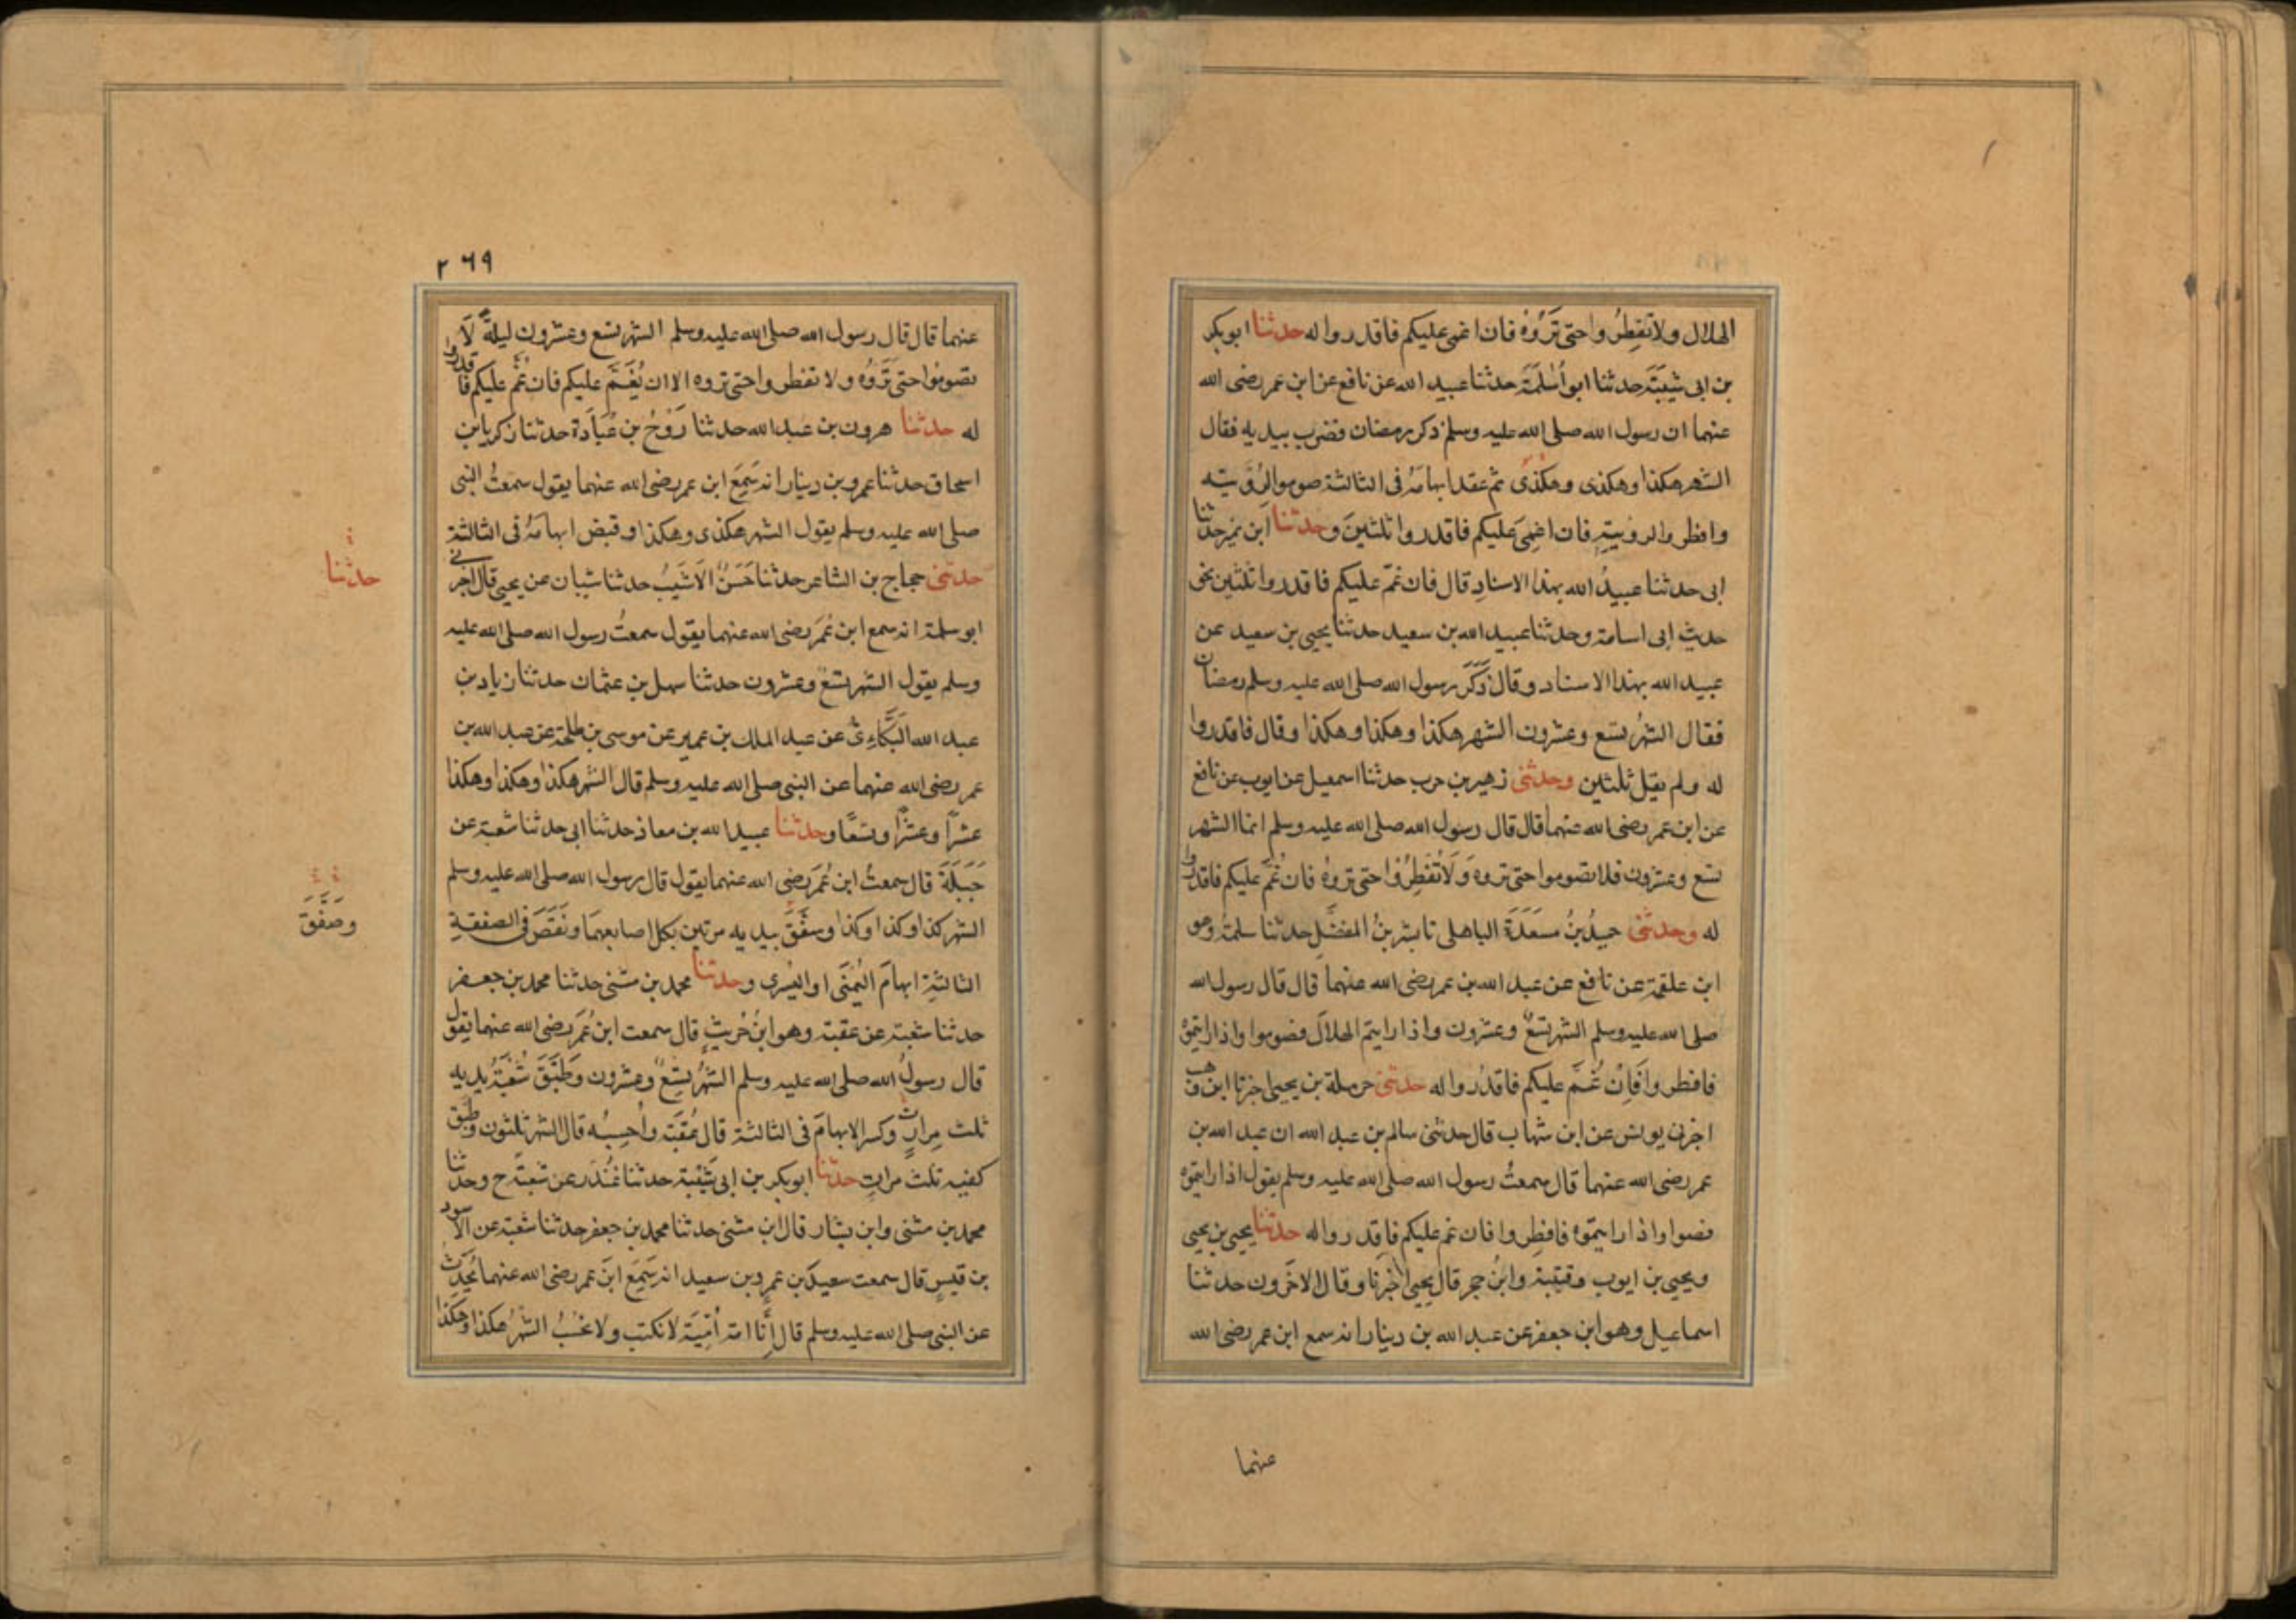 الهلال ولا تفطروا حتى تَرَوْهُ فان اغمى عليكم فاقدروا له حدثنا ابو بكر
بن ابى شَيْبَةَ حدثنا ابو اُسَامَة حدثنا عبيد الله عن نافع عن ابن عمر رضى الله
عنهما ان رسول الله صلى الله عليه وسلم ذكر رمضان فضرب بيديه فقال
الشهر هكذا وهكذى وهكذى ثم عقد ابهامَهُ فى الثالثة صوموا لرُؤيَتِه
وافطروا لرؤيتِهِ فان اغمِىَ عليكم فاقدروا ثلثينَ وحدثنا ابن نمير حدثنا
ابى حدثنا عبيدُ الله بهذا الاسنادِ قال فان غمَّ عليكم فاقدروا ثلثين نحو
حديث ابى اسامة وحدثنا عبيد الله بن سعيد حدثنا يحيى بن سعيد عن
عبيد الله بهذا الاسناد وقال ذَكَرَ رسول الله صلى الله عليه وسلم رمضان
فقال الشهرُ تسع وعشرون الشهر هكذا وهكذا وهكذا وقال فاقدروا
له ولم يقل ثلثين وحدثنى زهير بن حرب حدثنا اسمعيل عن ايوب عن نافع
عن ابن عمر رضى الله عنهما قال قال رسول الله صلى الله عليه وسلم انما الشهر
تسع وعشرون فلا تصوموا حتى تروه وَلَا تُفطِرُوْا حتى تروْهُ فان غُمَّ عليكم فاقدروا
له وحدثنى حميدُ بنُ مسعَدَةَ الباهلى نا بشر بنُ المفضَّلِ حدثنا سلمةُ وهو
ابن علقمة عن نافع عن عبد الله بن عمر رضى الله عنهما قال قال رسول الله
صلى الله عليه وسلم الشهر تسعٌ وعشرون واذا رايتم الهلالَ فصوموا واذا رايتموه
فافطروا فَاِنْ غُمَّ عليكم فاقدُروا له حدثنى حرملة بن يحيى اخبرنا ابن وهب
اخبرنى يونس عن ابن شهاب قال حدثنى سالم بن عبد الله ان عبد الله بن
عمر رضى الله عنهما قال سمعتُ رسول الله صلى الله عليه وسلم يقول اذا رايتموه
فصوا واذا رايتموه فافطِروا فان غم عليكم فاقدروا له حدثنا يحيى بن يحيى
ويحيى بن ايوب وقتيبة وابنُ حجر قال يحيى اخبرنا وقال الاخَرون حدثنا
اسماعيل وهو ابن جعفر عن عبد الله بن دينار انه سمع ابن عمر رضى الله
عنهما
٢٦٩
عنهما قال قال رسول الله صلى الله عليه وسلم الشهر تسع وعشرون ليلةً لَا
تصوموا حتى تَرَوْهُ ولا تفطروا حتى تروه الا ان يُغَمَّ عليكم فان غُمَّ عليكم فاقدروا
له حدثنا هرون بن عبد الله حدثنا رَوْحُ بن عُبَادَة حدثنا زكريا بن
اسحاق حدثنا عمرو بن دينار انه سَمِعَ ابن عمر رضى الله عنهما يقول سمعتُ النبى
صلى الله عليه وسلم يقول الشهر هكذى وهكذا وقبض ابهامَهُ فى الثالثة
حدثنى حجاج بن الشاعر حدثنا حَسَنٌ الاَشْيَبُ حدثنا شيبان عن يحيى قال اخبرنى
حدثنا
ابو سلمة انه سمع ابن عُمَرَ رضى الله عنهما يقول سمعتُ رسول الله صلى الله عليه
وسلم يقول الشهر تسعٌ وعشرون حدثنا سهل بن عثمان حدثنا زياد بن
عبد الله البَكَّاءِىُّ عن عبد الملك بن عمير عن موسى بن طلحة عن عبد الله بن
عمر رضى الله عنهما عن النبى صلى الله عليه وسلم قال الشهر هكذا وهكذا وهكذا
عشرًا وعشرًا وتسعًا وحدثنا عبيد الله بن معاذ حدثنا ابى حدثنا شعبة عن
جَبَلَةَ قال سمعتُ ابن عُمَرَ رضى الله عنهما يقول قال رسول الله صلى الله عليه وسلم
الشهر كذا وكذا وكذا وسفَّقَ بيديه مرتين بكل اصابعهمَا ونَقَصَ فى الصفقةِ
وصَفَّقَ
الثالثةِ ابهامَ اليُمنَى او اليُسرى وحدثنا محمد بن مثنى حدثنا محمد بن جعفر
حدثنا شعبة عن عقبة وهو ابنُ حُرَيثٍ قال سمعت ابن عُمَرَ رضى الله عنهما يقول
قال رسولُ الله صلى الله عليه وسلم الشهرُ تِسْعٌ وعشرون وَطَبَّقَ شُعْبَةُ يديه
ثلث مِرارٍ وكسر الابهامَ فى الثالثة قال عُقبَة واَحسِبُه قال الشهر ثلثون وطبق
كفيه ثلث مراتٍ حدثنا ابو بكر بن ابى شَيْبَة حدثنا غُنْدَر عن شعبَةَ ح وحدثنا
محمد بن مثنى وابن بشار قال ابن مثنى حدثنا محمد بن جعفر حدثنا شعبة عن الاسود
بن قيسٍ قال سمعت سعيدَ بن عمرو بن سعيد انه سَمِعَ ابنَ عمر رضى الله عنهما يُحَدِّث
عن النبى صلى الله عليه وسلم قال اِنَّا امة اُمّيّة لا نكتب ولا نحسُبُ الشهرُ هكذا وهكذا